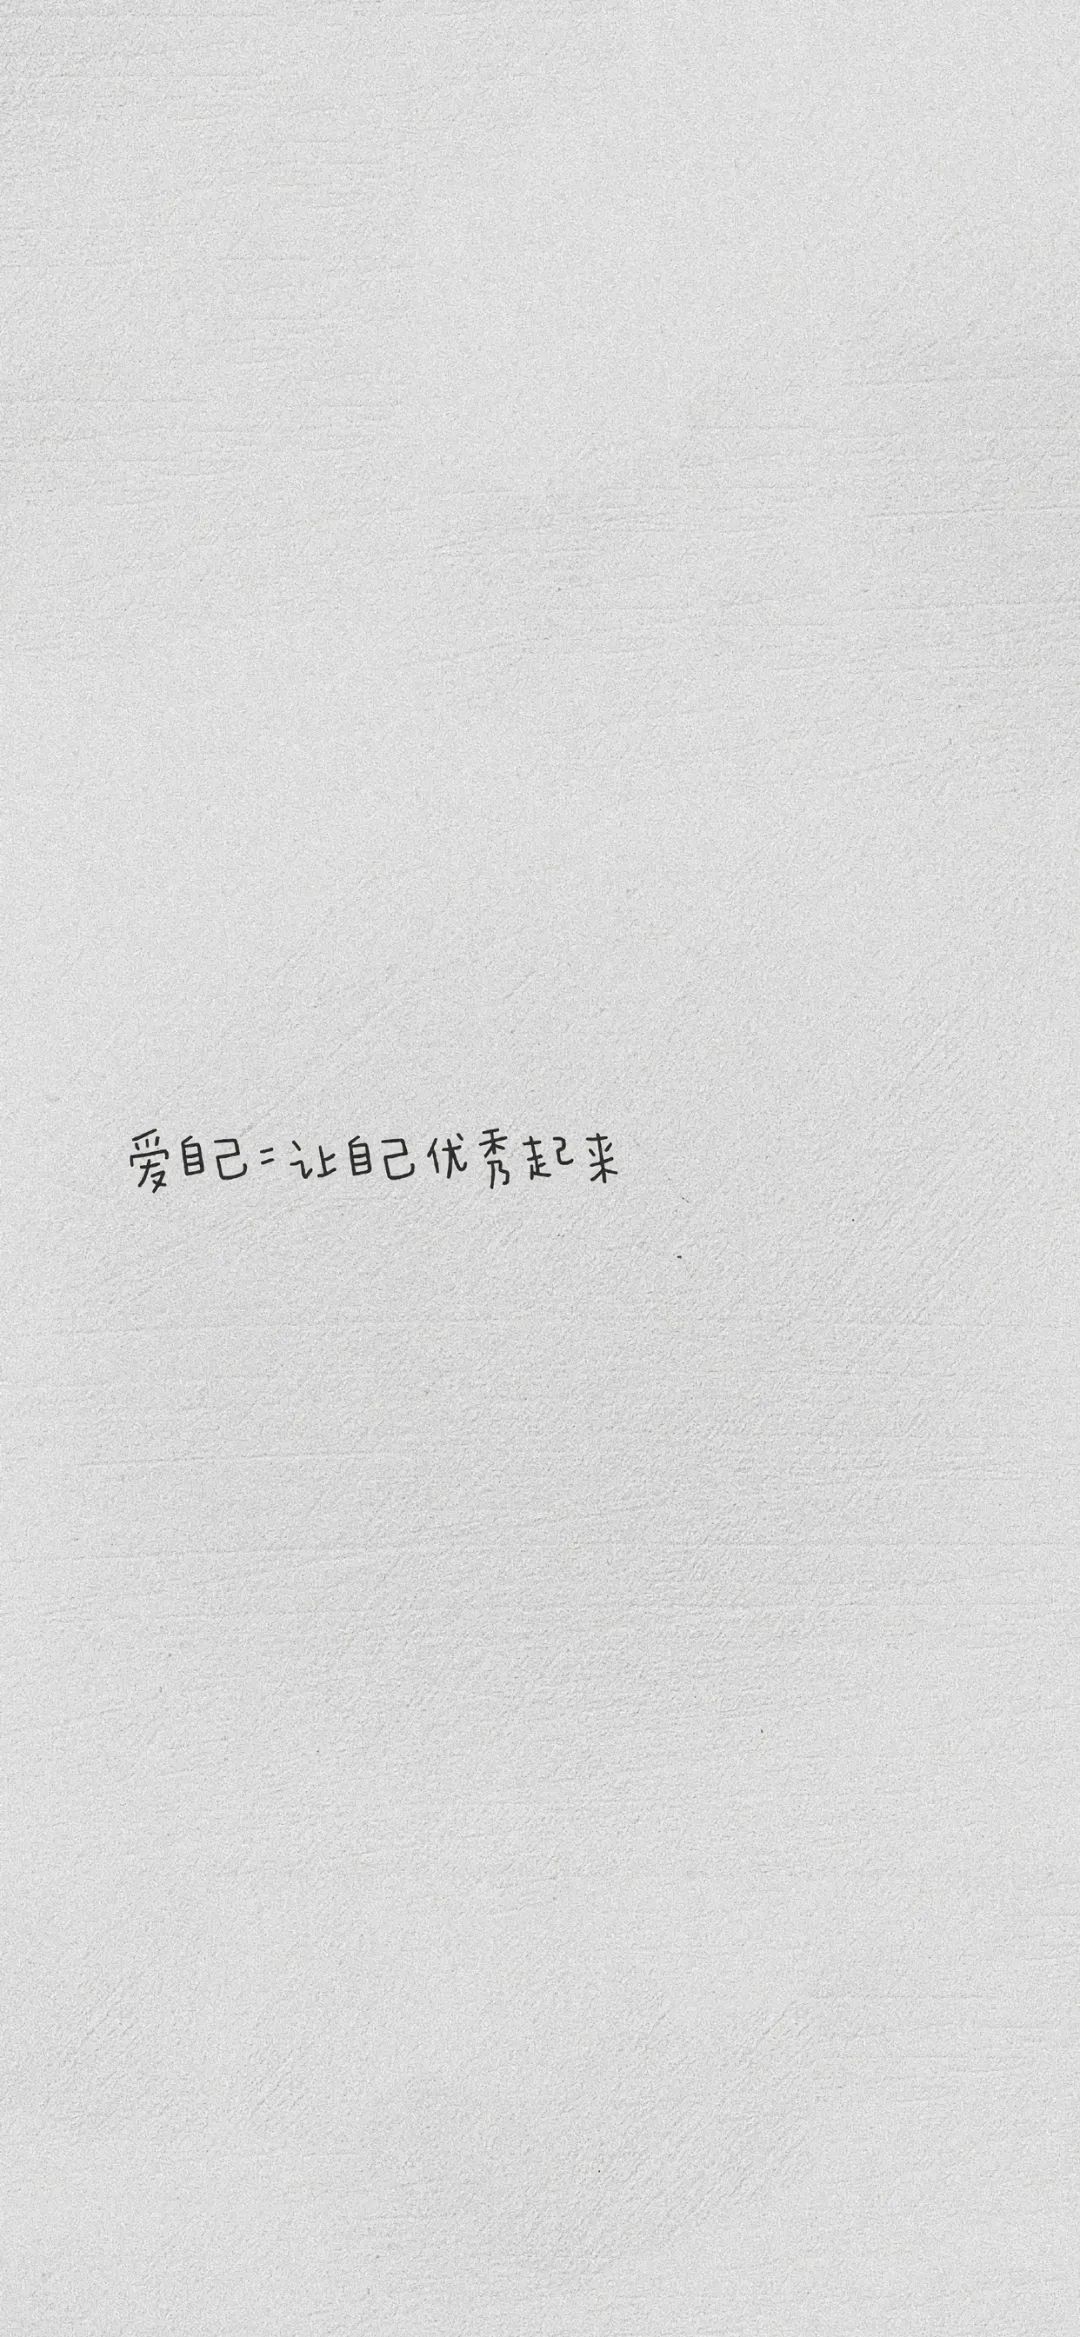 爱自己=让自己优秀起来